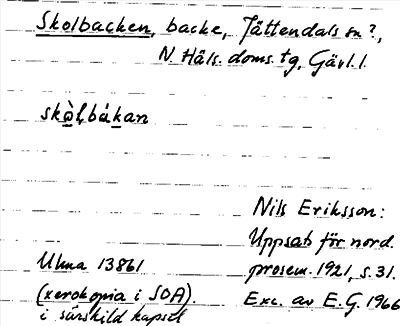 Skolbacken, backe, Jättendals sn?,
N. Häls. doms. tg, Gävl. l.
skòl,bákan
Nils Eriksson:
Uppsats för nord.
Ulma 13861 prosem. 1921, s. 31.
(xerokopia i SOA). Exc. av E.G. 1966
i särskild kapsel